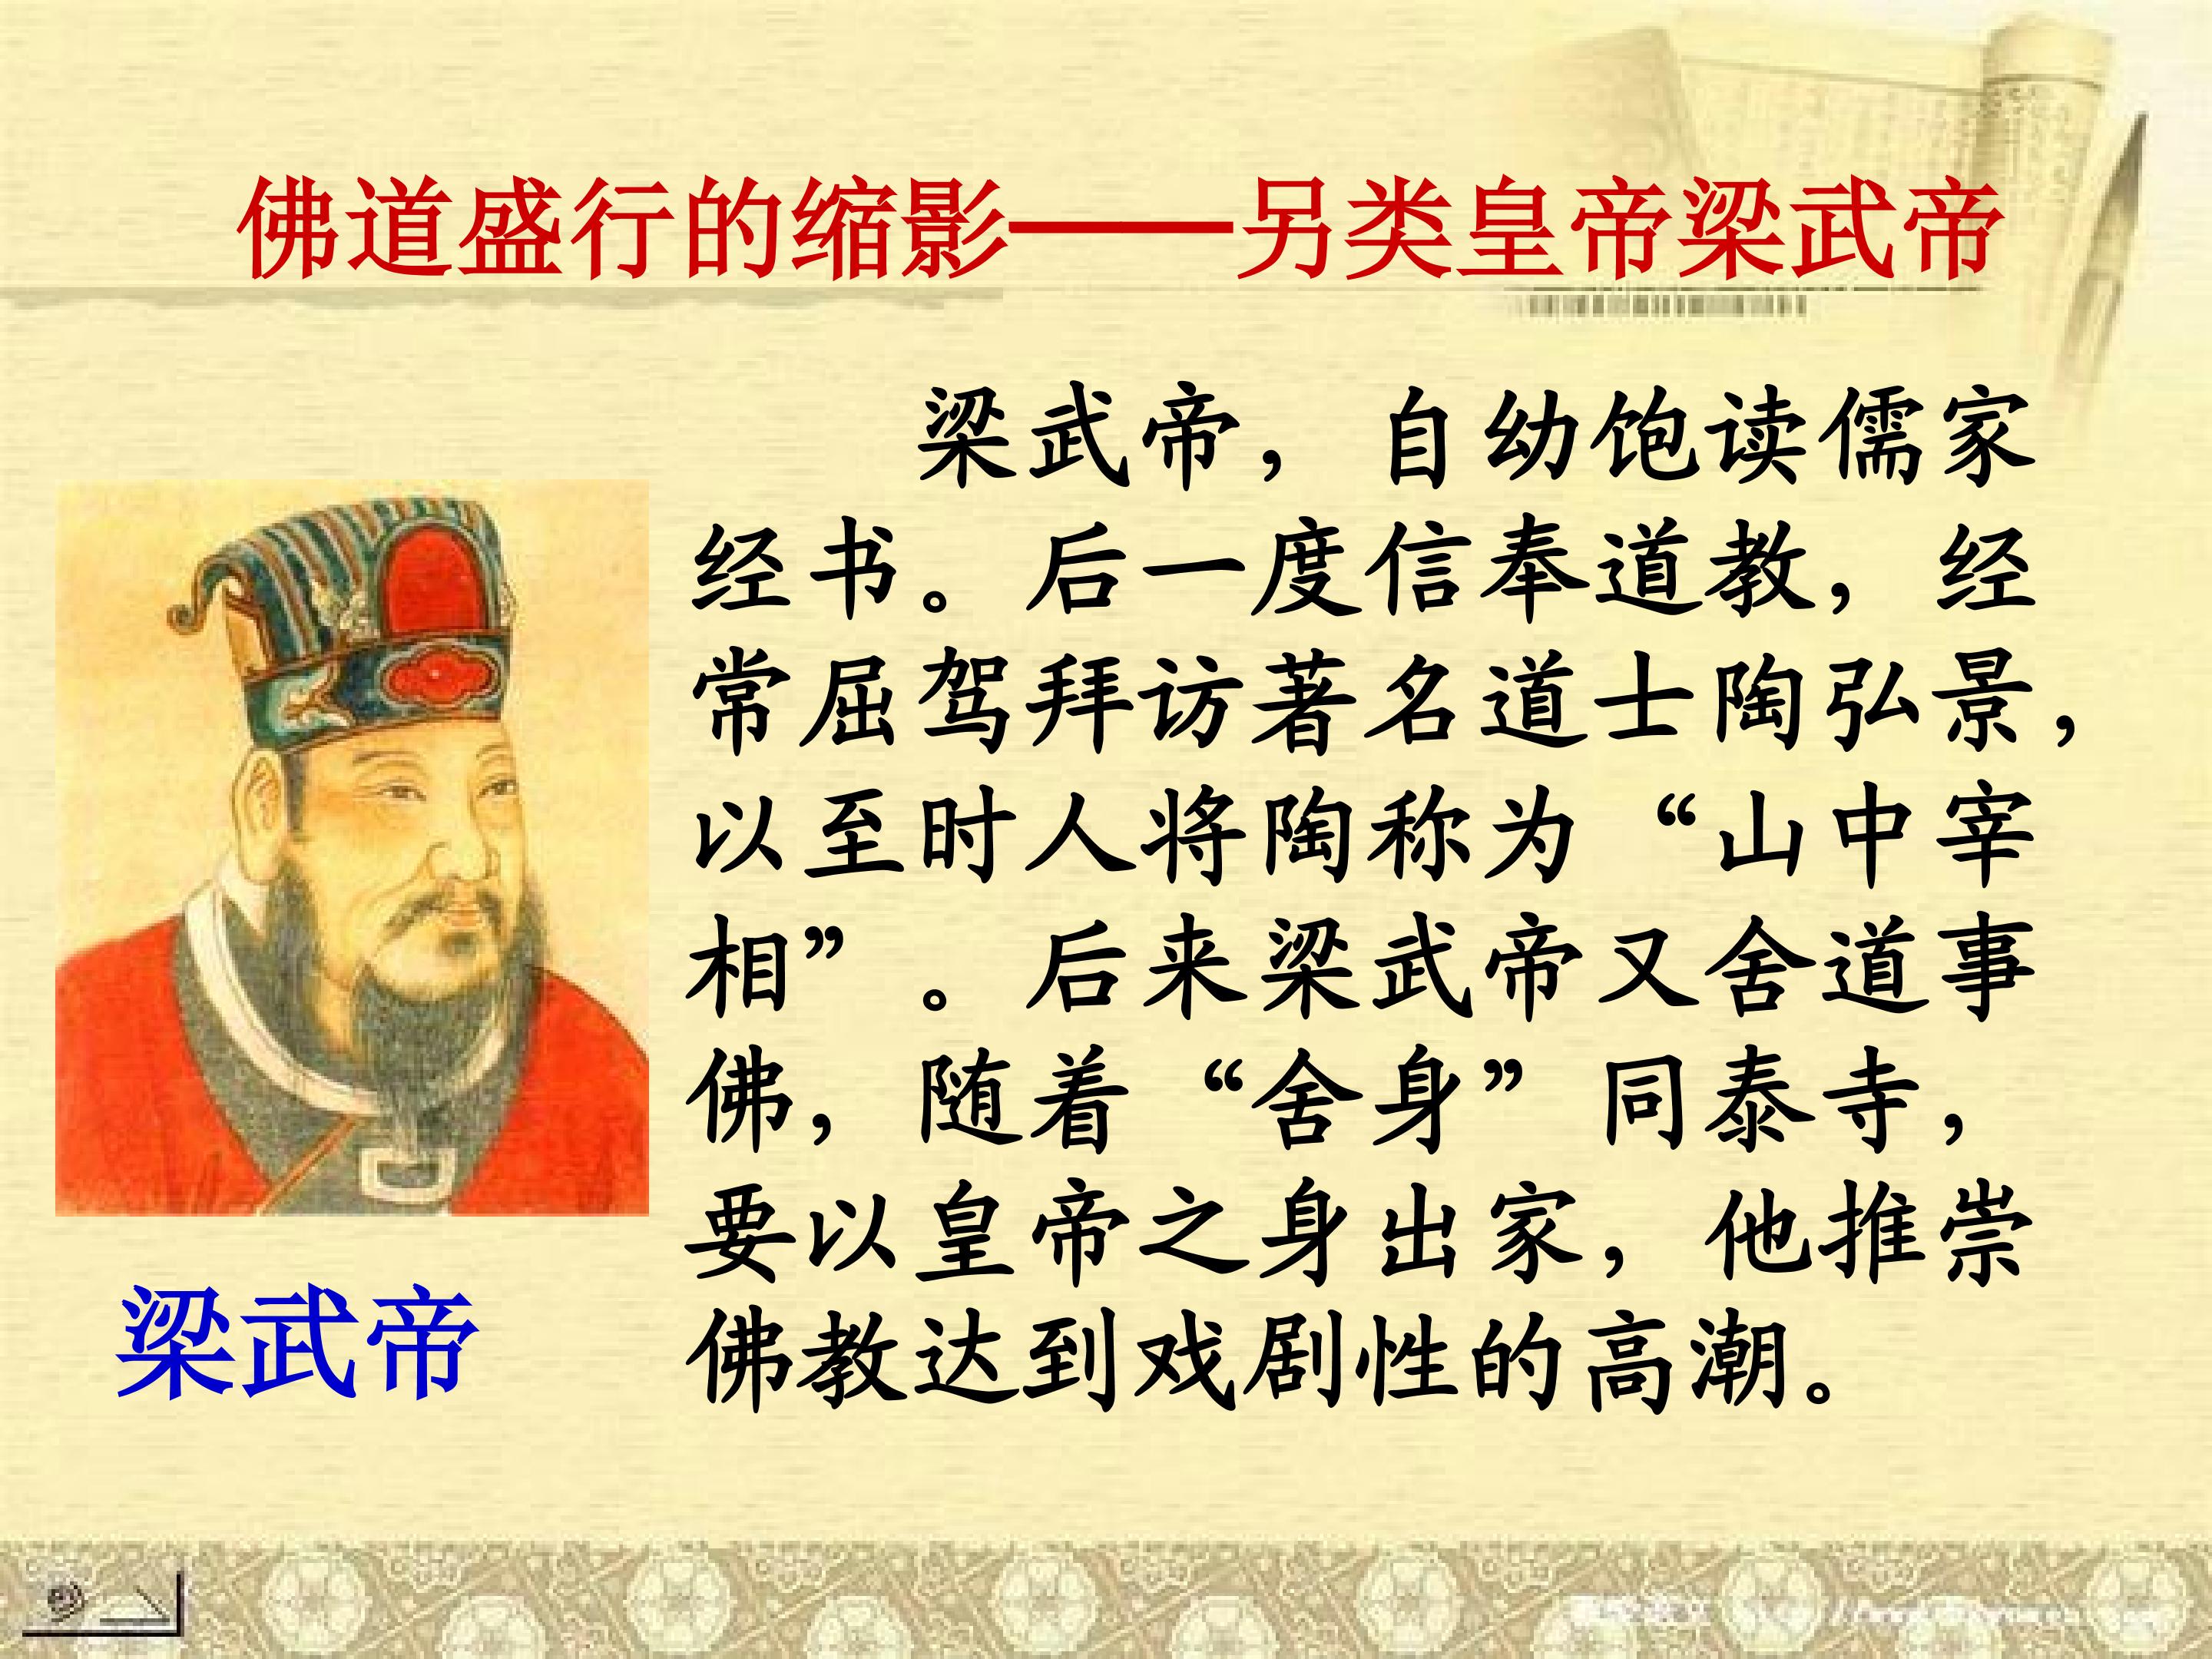 佛道盛行的缩影——另类皇帝梁武帝
梁武帝，自幼饱读儒家
经书。后一度信奉道教，经
常屈驾拜访著名道士陶弘景，
以至时人将陶称为“山中宰
相”。后来梁武帝又舍道事
佛，随着“舍身”同泰寺，
要以皇帝之身出家，他推崇
佛教达到戏剧性的高潮。
梁武帝